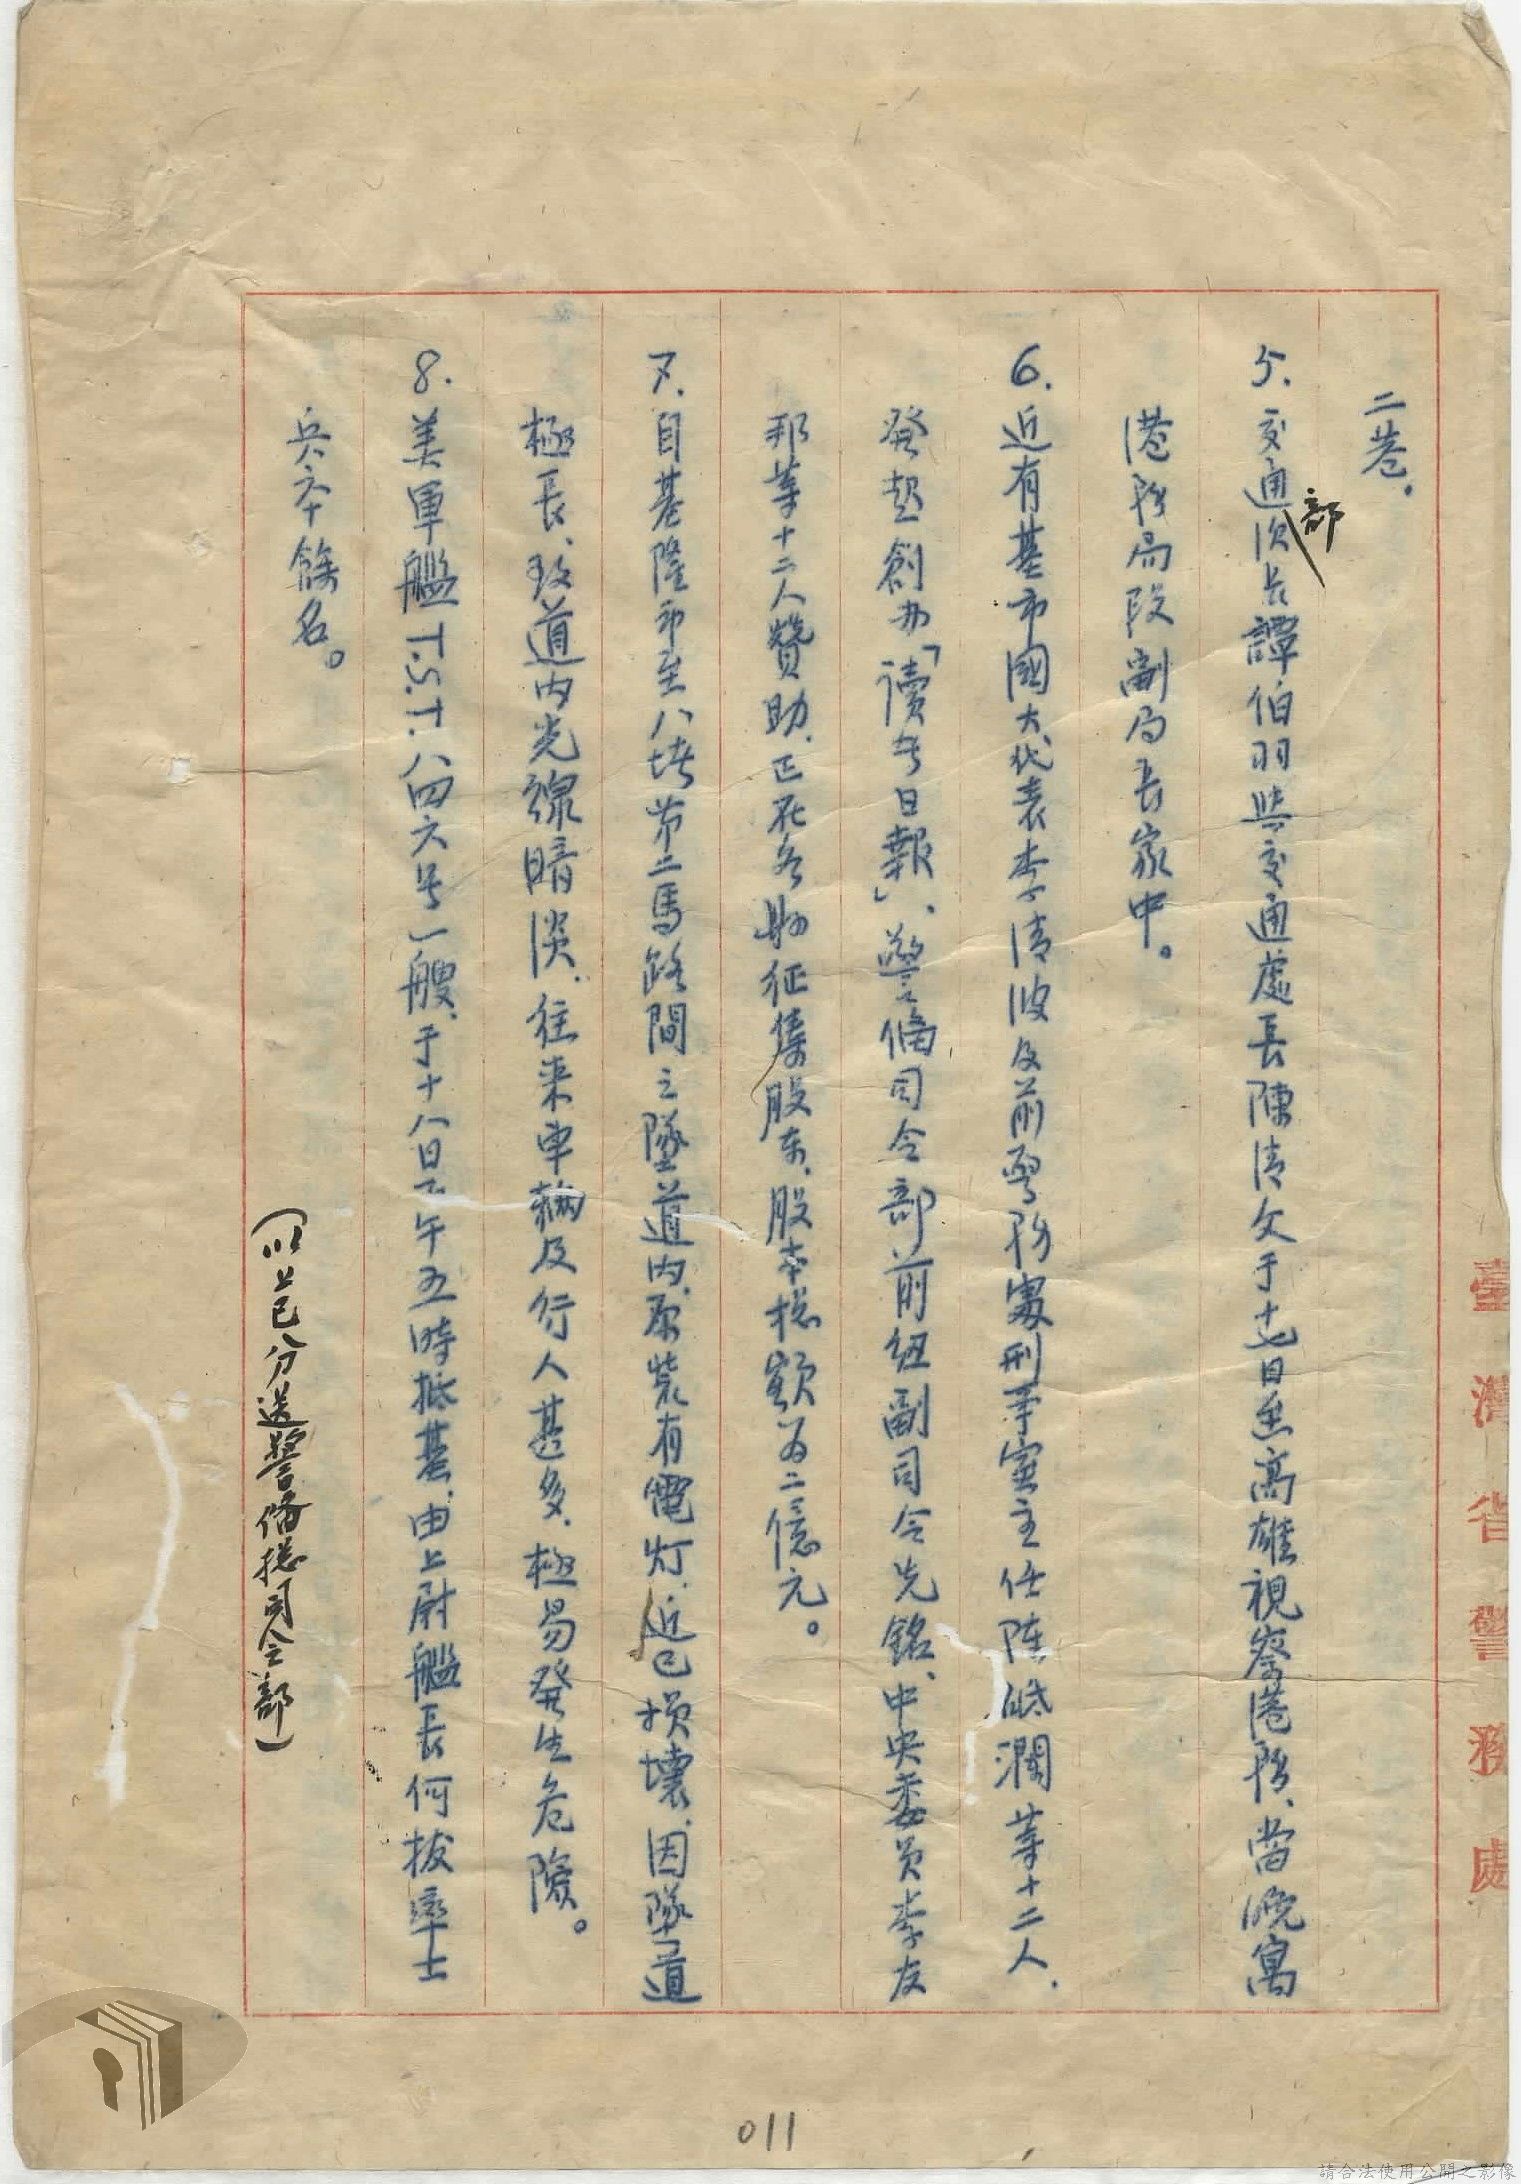 二巷。
5. 交通部次长譚伯羽與交通處長陳清文于十七日至高雄視察港務、當晚寓
港務局段副局長家中。
6. 近有基市國大代表李清波及前警務處刑事室主任陈砥瀾等十二人、
發起創办「讀者日報」、警備司令部前鈕副司令先銘、中央委员李友
邦等十二人贊助、正在各地征集股东、股本総額为二億元。
7. 自基隆市至八堵第二馬路間之墜道内、原裝有電灯、近已损壞、因墜道
極長、致道内光線暗淡、往来車輛及行人甚多、極易發生危險。
8. 美軍艦T.S.T.八四六号一艘、于十八日下午五時抵基、由上尉艦長何拔率士
兵六十餘名。
(以上已分送警俻総司令部)
臺灣省警務處
011
請合法使用公開之影像